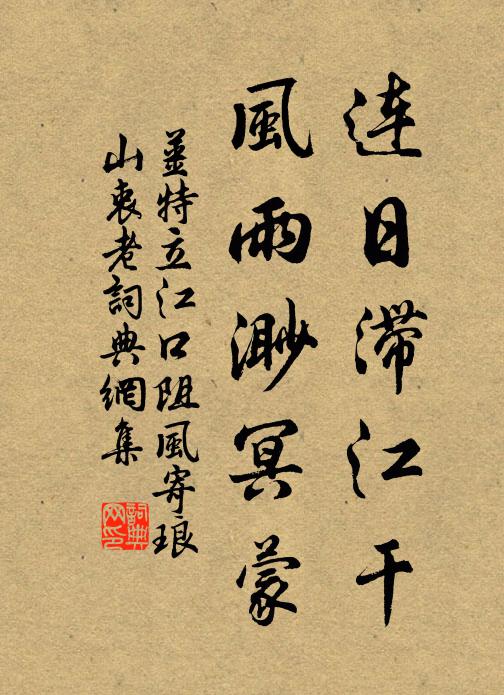 連日滯江干
風雨渺冥蒙
姜特立江口阻風寄琅
山衷老詞典網集
詞典
网印